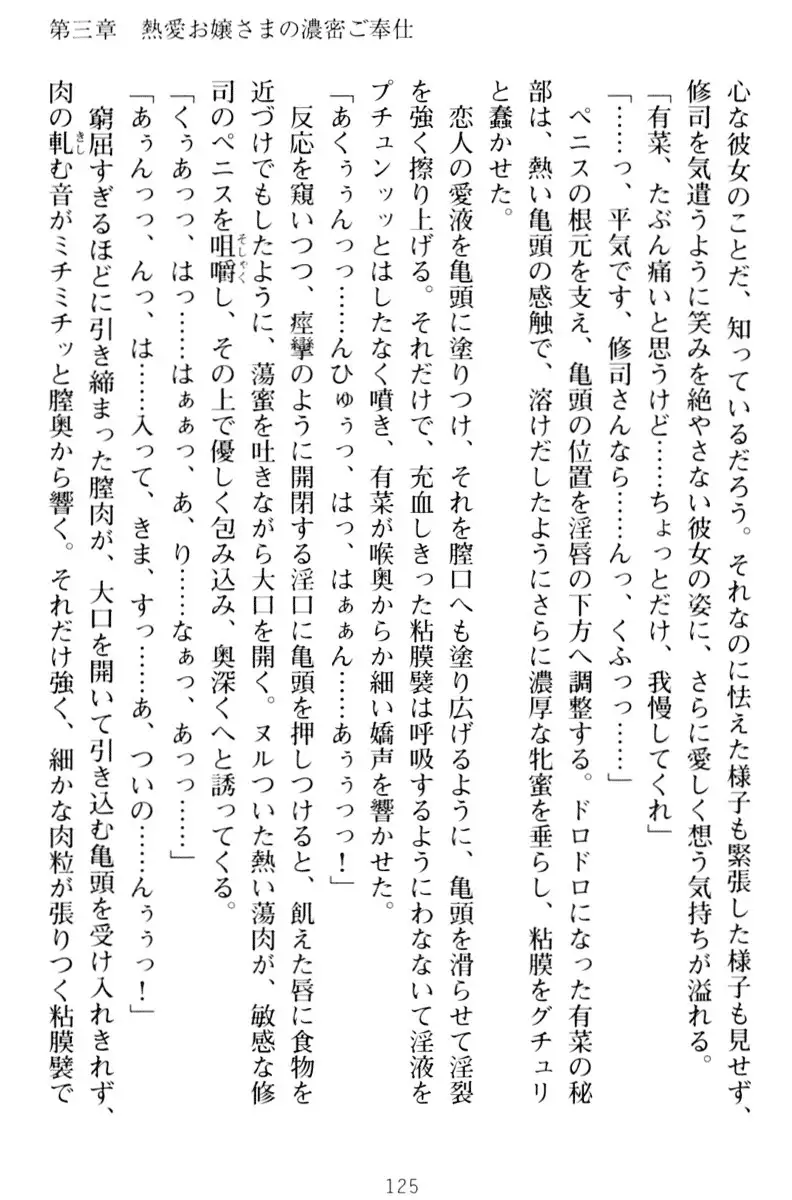 第三章　熱愛お嬢さまの濃密ご奉仕
心な彼女のことだ、知っているだろう。それなのに怯えた様子も緊張した様子も見せず、
修司を気遣うように笑みを絶やさない彼女の姿に、さらに愛しく想う気持ちが溢れる。
「有菜、たぶん痛いと思うけど……ちょっとだけ、我慢してくれ」
「……っ、平気です、修司さんなら……んっ、くふっっ……」
ペニスの根元を支え、亀頭の位置を淫唇の下方へ調整する。ドロドロになった有菜の秘
部は、熱い亀頭の感触で、溶けだしたようにさらに濃厚な牝蜜を垂らし、粘膜をグチュリ
と蠢かせた。
恋人の愛液を亀頭に塗りつけ、それを膣口へも塗り広げるように、亀頭を滑らせて淫裂
を強く擦り上げる。それだけで、充血しきった粘膜襞は呼吸するようにわなないて淫液を
プチュンッッとはしたなく噴き、有菜が喉奥からか細い嬌声を響かせた。
「あくぅぅんっっ……んひゅぅっ、はっ、はぁぁん……あぅぅっっ！」
反応を窺いつつ、痙攣のように開閉する淫口に亀頭を押しつけると、飢えた唇に食物を
近づけでもしたように、蕩蜜を吐きながら大口を開く。ヌルついた熱い蕩肉が、敏感な修
司のペニスを咀嚼し、その上で優しく包み込み、奥深くへと誘ってくる。
そしゃく
「くぅあっっ、はっ……はぁぁっ、あ、り……なぁっ、あっっ……」
「あぅんっっ、んっ、は……入って、きま、すっ……あ、ついの……んぅぅっ！」
窮屈すぎるほどに引き締まった膣肉が、大口を開いて引き込む亀頭を受け入れきれず、
肉の軋む音がミチミチッと膣奥から響く。それだけ強く、細かな肉粒が張りつく粘膜襞で
きし
125